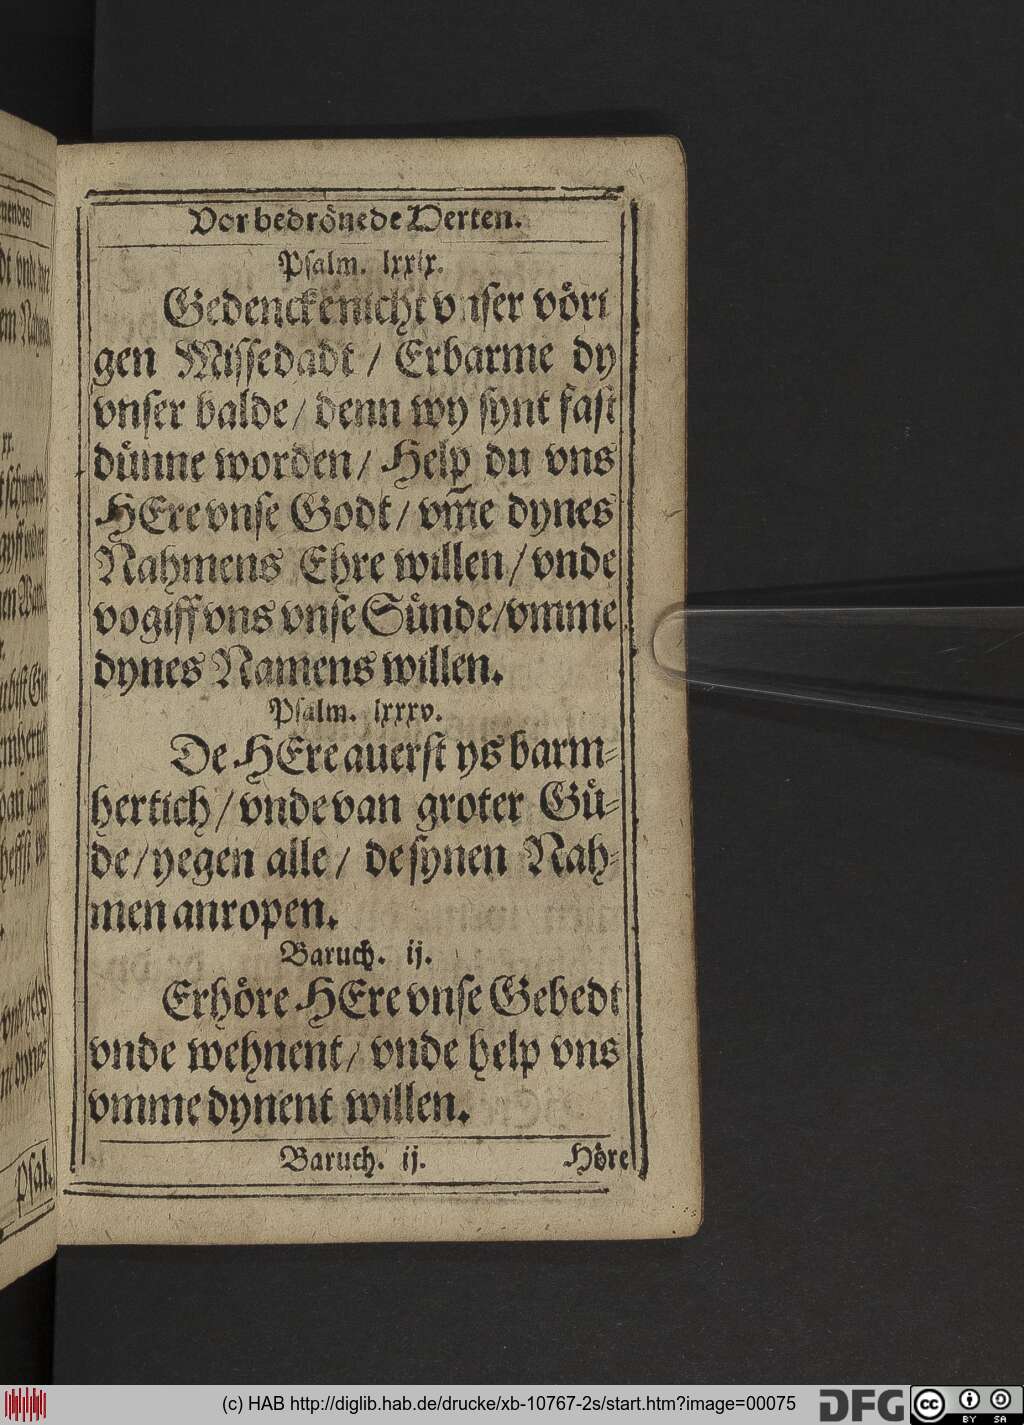 Vor bedrönede Herten.
Psalm. lxxix.
Gedencke nicht vnser vöri
gen Missedadt / Erbarme dy
vnser balde / denn wy synt fast
dünne worden / Help du vns
HEre vnse Godt / vm̄e dynes
Nahmens Ehre willen / vnde
vogiff vns vnse Sünde / vmme
dynes Namens willen.
Psalm. lxxxv.
De HEre auerst ys barm-
hertich / vnde van groter Gü-
de / yegen alle / de synen Nah-
men anropen.
Baruch. ij.
Erhöre HEre vnse Gebedt
vnde wehnent / vnde help vns
vmme dynent willen.
Baruch. ij. Höre
Psal.
(c) HAB http://diglib.hab.de/drucke/xb-10767-2s/start.htm?image=00075
DFG
cc
BY SA